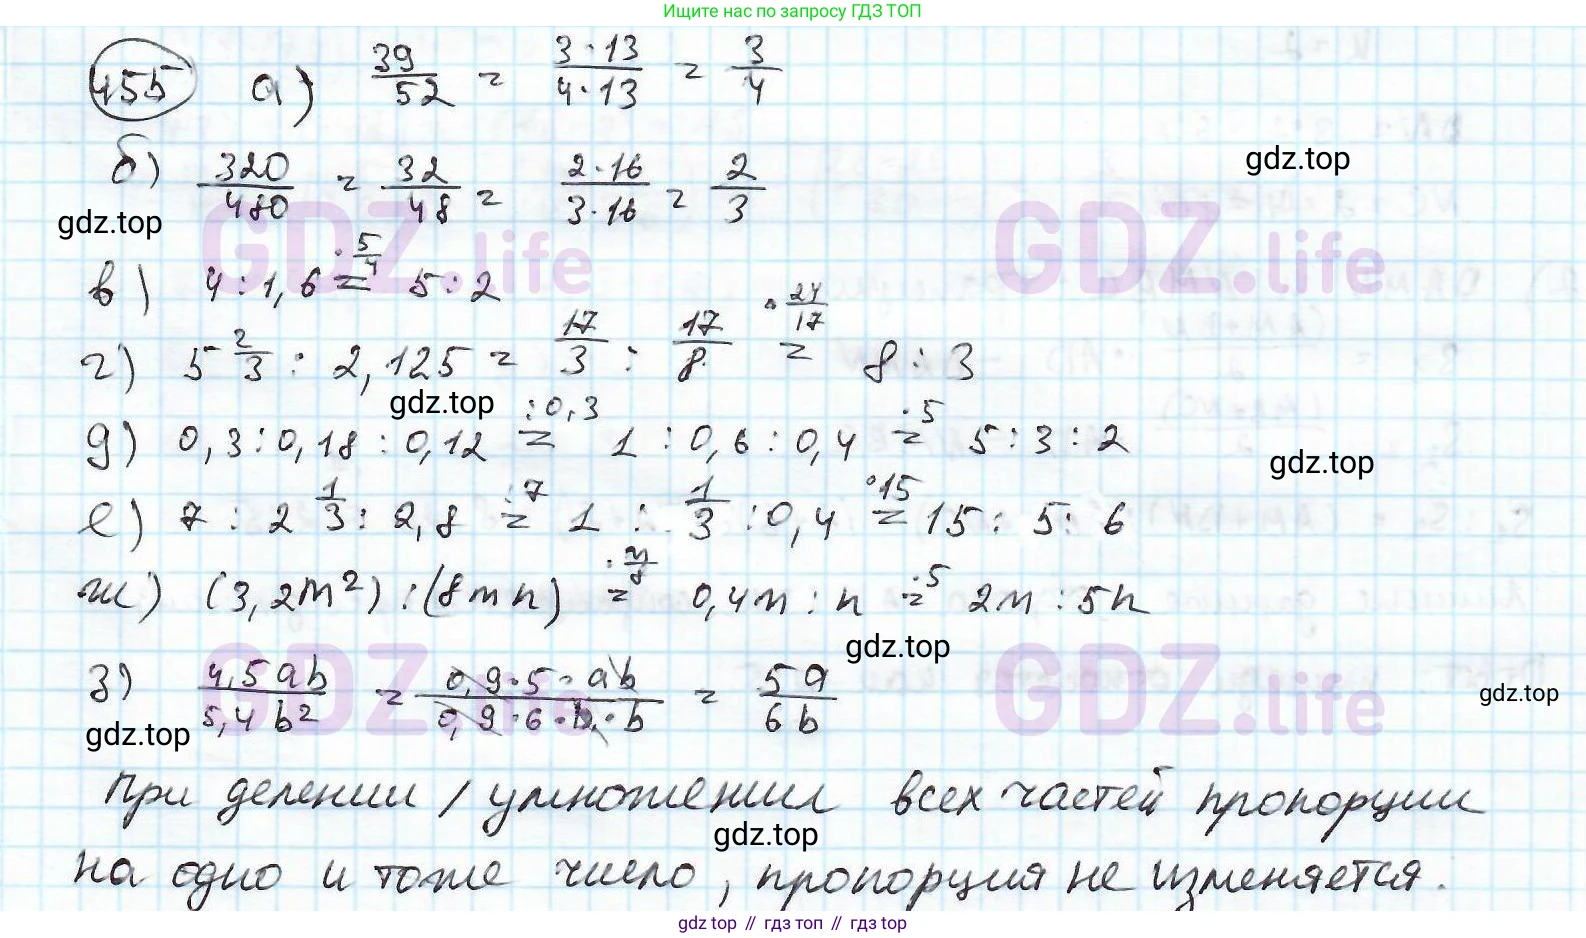 Ищите нас по запросу ГДЗ ТОП
455 а) 39/52 = 3·13/4·13 = 3/4
gdz.top
б) 320/480 = 32/48 = 2·16/3·16 = 2/3
gdz.top
GDZ.life GDZ.life
в) 4 : 1,6 =^{·5/4} 5 : 2
г) 5 2/3 : 2,125 = 17/3 : 17/8 =^{·24/17} 8 : 3
gdz.top
д) 0,3 : 0,18 : 0,12 =^{:0,3} 1 : 0,6 : 0,4 =^{·5} 5 : 3 : 2
gdz.top
е) 7 : 2 1/3 : 2,8 =^{:7} 1 : 1/3 : 0,4 =^{·15} 15 : 5 : 6
ж) (3,2m²) : (8mn) = 0,4m : n =^{·5} 2m : 5n
gdz.top
GDZ.life GDZ.life
з) 4,5ab/5,4b² = 0,9·5·ab/0,9·6·b·b = 5a/6b
gdz.top
gdz.top
При делении / умножении всех частей пропорции
gdz.top
на одно и тоже число, пропорция не изменяется.
gdz top // гдз топ // гдз top